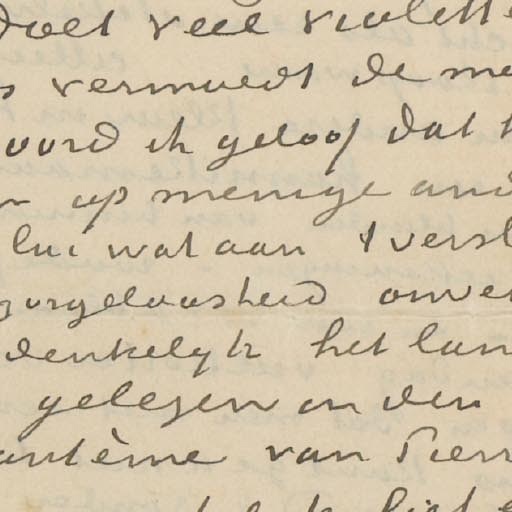 doet veel violette
vermoedt de me
woord ik geloof dat
op menige and
lui wat aan 't versl
zorgeloosheid onver
denkelijk het lan
gelezen en den
antème van Pierr